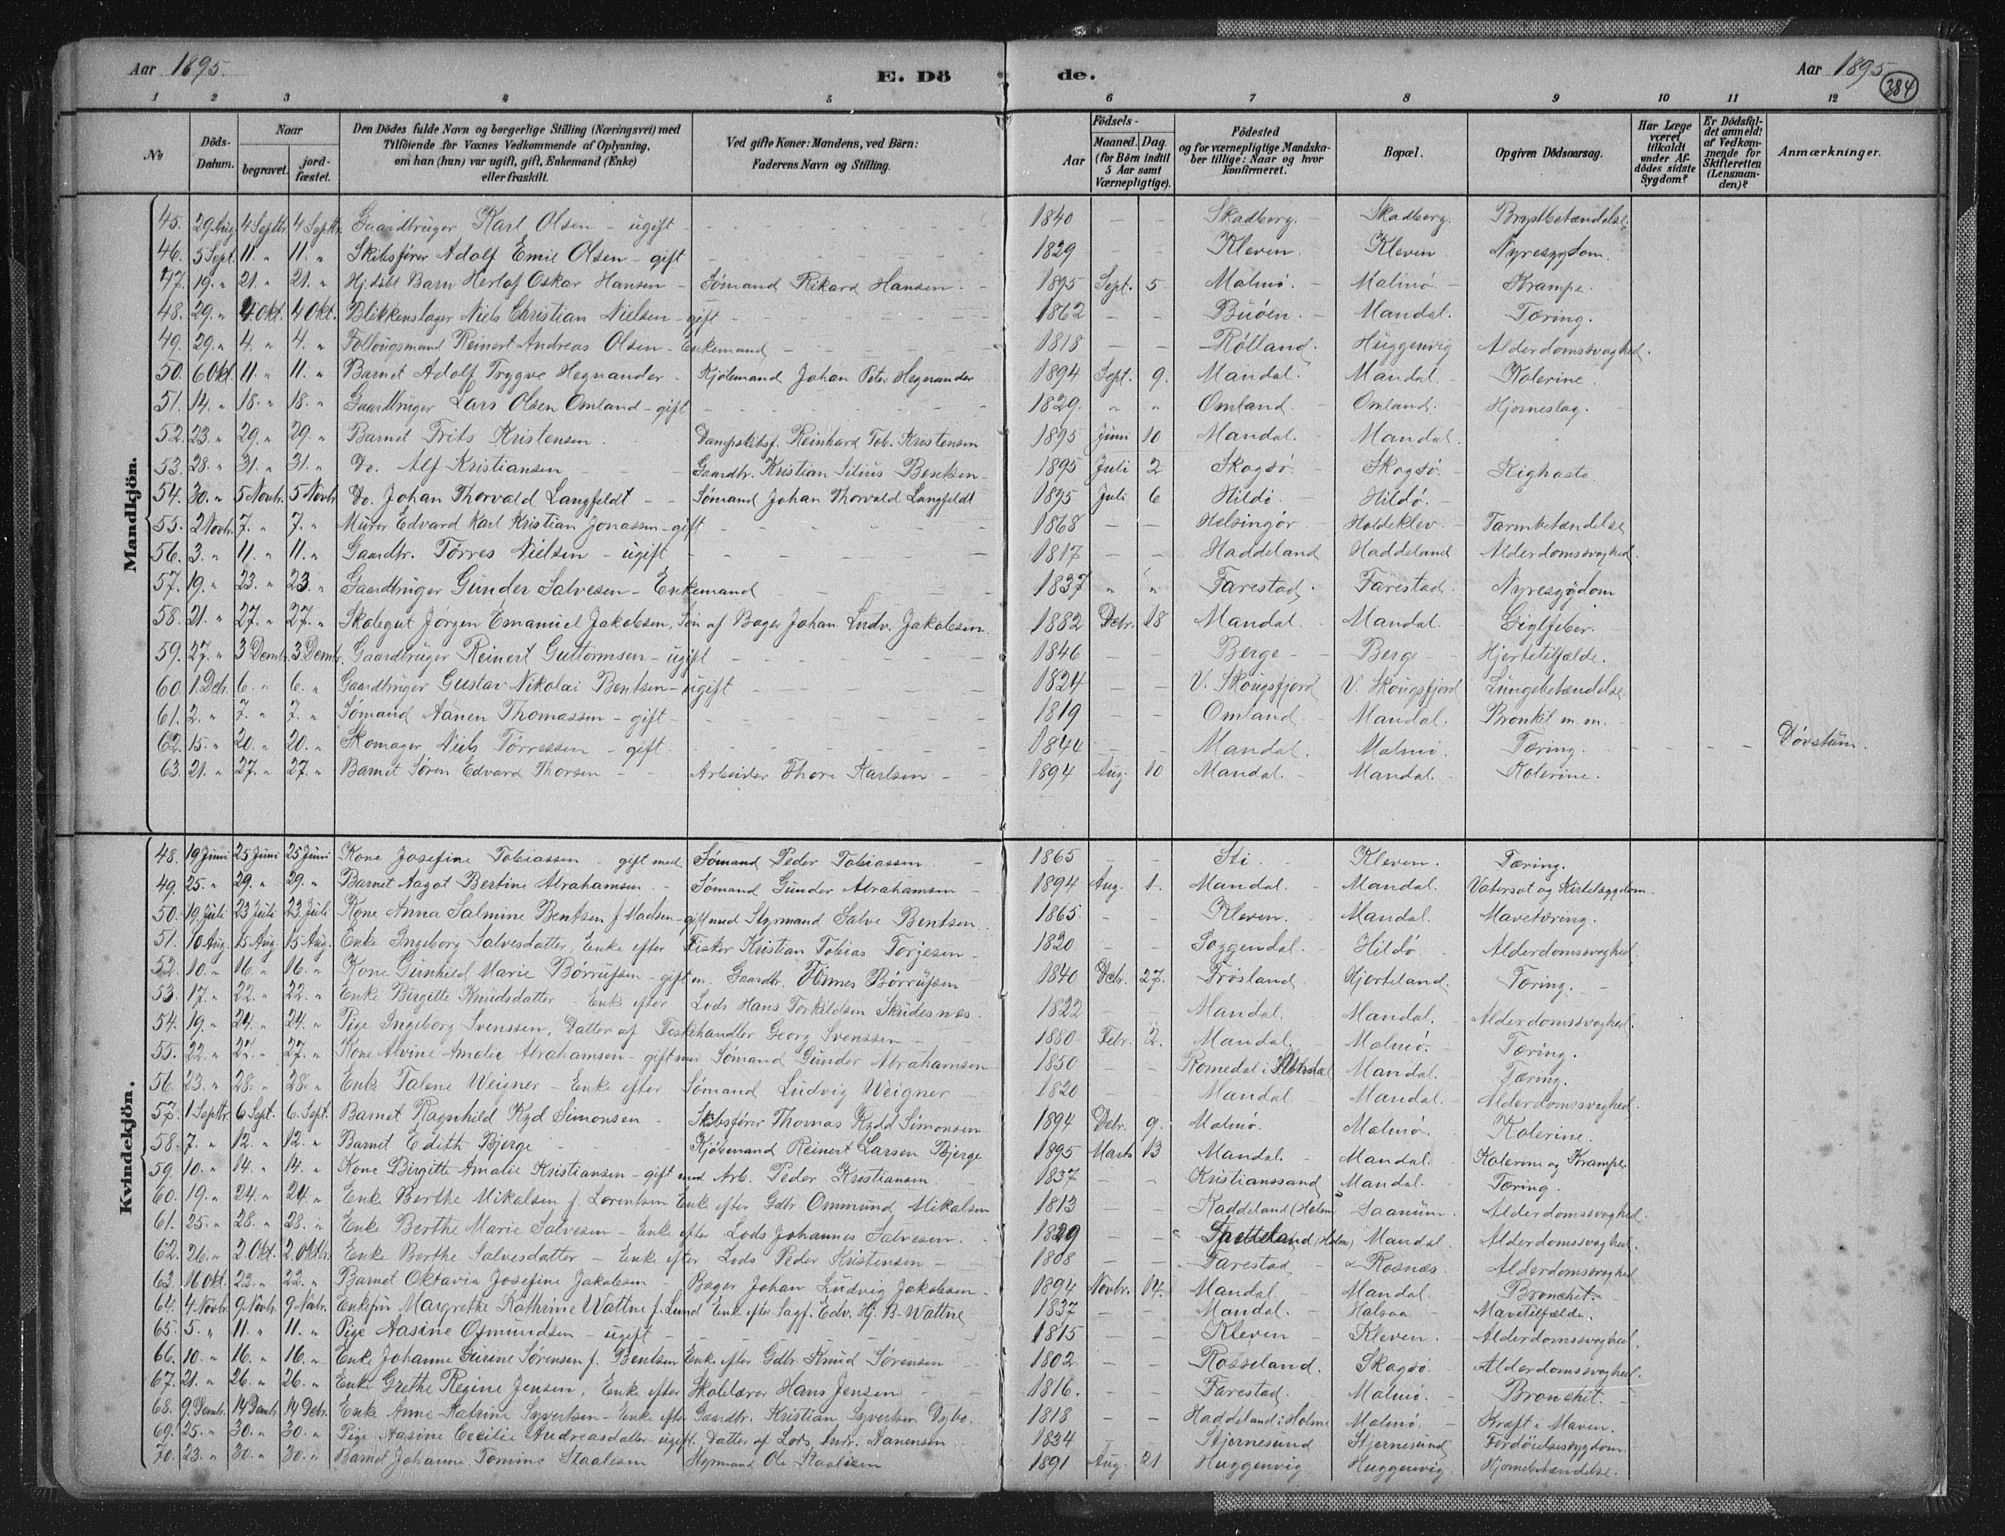 Aar 1895. E. Dö de. Aar 1895 384
1 2 3 4 5 6 7 8 9 10 11 12
No Döds-Datum. Naar begravet. jord-fæstet. Den Dödes fulde Navn og borgerlige Stilling (Næringsvei) med Tilföiende for Voxnes Vedkommende af Oplysning, om han (hun) var ugift, gift, Enkemand (Enke) eller fraskilt. Ved gifte Koner: Mandens, ved Börn: Faderens Navn og Stilling. Födsels- Aar Maaned. Dag. (for Börn indtil 5 Aar samt Værnepligtige). Födested og for værnepligtige Mandskaber tillige: Naar og hvor konfirmeret. Bopæl. Opgiven Dödsaarsag. Har Læge været tilkaldt under Afdödes sidste Sygdom? Er Dödsfaldet anmeldt af Vedkommende for Skifteretten (Lensmanden)? Anmærkninger.
Mandkjön.
45. 29 Aug 4 Septbr 4 Septbr. Gaardbruger Karl Olsen - ugift - 1840 - - Skadberg. - Skadberg. Brystbetændelse.
46. 5 Sept. 11. " 11. " Skibsfører Adolf Emil Olsen - gift 1829 - - Kleven - Kleven. Nyresygdom.
47. 19. " 21. " 21. " Hjdøbt Barn Herlof Oskar Hansen - Sømand Rikard Hansen. - 1895 Sept. 5. Malmø. - Malmø. - Krampe.
48. 29. " 4 Okt. 4 Okt. Blikkenslager Niels Christian Nielsen - gift - 1862 - - Büøen. - Mandal. Tæring.
49. 29. " 4. " 4. " Føllougsmand Reinert Andreas Olsen - Enkemand - 1818 - - Rølland. Huggenvig Alderdomssvaghed.
50. 6 Okt. 11. " 11. " Barnet Adolf Trygve Hegnander - Kjøbmand Johan Peter Hegnander 1894 Sept. 9. Mandal. Mandal. - Kolerine.
51. 14. " 18. " 18. " Gaardbruger Lars Olsen Omland - gift - 1829. " " Omland. - Omland. Hjerneslag.
52. 23. " 29. " 29. " Barnet Frits Kristensen. Dampskibsf. Reinhard Tob. Kristensen 1895 Juni 10 Mandal. - Mandal.
53. 28. " 31. " 31. " Do. Alf Kristiansen - Gaardbr. Kristian Silius Bentsen - 1895 Juli 2 Skogsø. - Skogsø. - Kighoste.
54. 30. " 5 Novbr. 5 Novbr Do. Johan Thorvald Langfeldt - - Sømand Johan Thorvald Langfeldt 1895 Juli 6 Hildø. - Hildø. -
55. 2 Novbr. 7. " 7. " Murer Edvard Karl Kristian Jonassen - gift 1868 - - Helsingør - Holdeklev. - Tarmbetændelse
56. 3. " 11. " 11. " Gaardbr. Tørres Nielsen - ugift - 1817 - - Haddeland Haddeland Alderdomssvaghed.
57. 19. " 23. " 23. " Gaardbruger Gunder Salvesen - Enkemand - 1837 " " Farestad. Farestad. Nyresygdom
58. 21. " 27. " 27. " Skolegut Jørgen Emanuel Jakobsen, Søn af Bager Johan Ludv. Jakobsen 1882 Debr. 18 Mandal. Mandal. Gigtfeber.
59. 27. " 3 Dembr. 3 Dembr. Gaardbruger Reinert Guttormsen - ugift - 1846 - - Berge - Berge - Hjertetilfælde.
60. 1. Dcbr. 6. " 6. " Gaardbruger Gustav Nikolai Bentsen - ugift - 1824 - - V. Skougsfjord V. Skougsfjord Lungebetændelse
61. 2. " 7. " 7. " Sømand Aanen Thomassen - gift - 1819 - - Omland. - Mandal. Bronkit m. m.
62. 15. " 20. " 20. " Skomager Niels Tørressen - gift. 1844 - - Mandal. Malmø. Tæring. - - - Døvstum.
63. 21. " 27. " 27. " Barnet Søren Edvard Thorsen - - Arbeider Thore Karlsen - - 1894 Aug. 10 Mandal. - Mandal. Kolerine.
Kvindekjön.
48. 19 Juni 25 Juni 25 Juni Kone Josefine Tobiassen - gift med Sømand Peder Tobiassen - 1865 - - Sti. - Kleven. Tæring.
49. 25. " 29. " 29. " Barnet Aagot Bertine Abrahamsen - Sømand Gunder Abrahamsen - 1894 Aug. 1. Mandal. - Mandal. Vatersot og Kirtelsygdom.
50. 19 Juli 23 Juli 23 Juli Kone Anna Salmine Bentsen f. Madsen - gift med Styrmand Salve Bentsen. 1865. - - Kleven. Mandal. Mavetæring.
51. 10 Aug. 15 Aug. 15 Aug. Enke Ingeborg Salvesdatter, Enke efter Fisker Kristian Tobias Torjesen - 1820 - - Soggendal. Hildø. Alderdomssvaghed.
52. 10. " 16. " 16. " Kone Gunhild Marie Børrufsen - gift m. Gaardbr. Tønnes Børrufsen 1840 Dcbr. 27. Frøsland. Hjorteland. Tæring. -
53. 17. " 22. " 22. " Enke Birgitte Knudsdatter - Enke efter Lods Hans Torkildsen Skudesnæs. - 1822 - - Mandal. - Mandal. Alderdomssvaghed
54. 19. " 24. " 24. " Pige Ingeborg Svenssen, Datter af Fiskehandler Georg Svenssen - - 1880 Febr. 2. Mandal. Malmø. Tæring.
55. 22. " 27. " 27. " Kone Alvine Amalie Abrahamsen - gift med Sømand Gunder Abrahamsen 1850 - - Romedal i Mandal. - Tæring.
56. 23. " 28. " 28. " Enke Talene Weigner - Enke efter Sømand Ludvig Weigner - 1820 - - Mandal - Mandal. - Alderdomssvaghed.
57. 1 Septbr. 6 Sept. 6. Sept. Barnet Ragnhild Kyd Simonsen - Skibsfører Thomas Kydd Simonsen 1894 Debr. 9. Malmø. Malmø. Kolerine.
58. 7. " 12. " 12. " Barnet Edith Bjerge - Kjøbmand Reinert Larsen Bjerge 1895 Marts 13 Mandal. - Mandal. Kolerine og Krampe.
59. 10. " 14. " 14. " Kone Birgith Amalie Kristiansen - gift med Arb. Peder Kristiansen. 1837 - - Kristianssand Mandal. Tæring.
60. 19. " 24. " 24 " Enke Berthe Mikalsen f. Lorentsen Enke efter Gdbr. Ommund Mikalsen 1813 - - Haddeland (Holm) Saanum. Alderdomssvaghed.
61. 25. " 28. " 28. " Enke Berthe Marie Salvesen - Enke efter Lods Johannes Salvesen. - 1829 - - (Holm) Mandal. Alderdomssvaghed.
62. 26. " 2 Okt. 2. Oktbr. Enke Berthe Salvesdatter - Enke efter Lods Peder Kristensen - 1808 - - Farestad. Rosnæs. Alderdomssvaghed
63. 16 Okt. 22. " 22. " Barnet Oktavia Josefine Jakobsen. Bager Johan Ludvig Jakobsen - 1894 Novbr. 14. Mandal. Mandal. Bronchit. -
64. 4. Novbr. 9 Novbr. 9 Novbr. Enkefru Margrethe Kathrine Wattne f. Lund Enke efter Sagf. Edv. Hj. B. Wattne 1837 - - Mandal. - Halsaa - Mavetilfælde.
65. 5. " 11. " 11. " Pige Aasine Osmundsen - ugift - 1815 - - Kleven - Kleven. - Alderdomssvaghed.
66. 10. " 16. " 16. " Enke Johanne Gurine Sørensen f. Bentsen Enke efter Gdbr. Knud Sørensen 1802 - - Rosseland. Skogsø - Alderdomssvaghed.
67. 21. " 26. " 26. " Enke Grethe Regine Jensen, Enke efter Skolelærer Hans Jensen - - 1816. - - Farestad. Malmø. - Bronchit. -
68. 9. Dembr. 14 Dembr. 14 Debr. Enke Anne Katrine Syvertsen - Enke efter Gaardbr. Kristian Syvertsen Dybo. 1818 - - Haddeland i Holme Malmø. - Kræft i Maven.
69. 25. " 30. " 30. " Pige Aasine Cecilie Andreasdatter - ugift. Datter af Lods Andr. Aanensen. 1834 - - Stjernesund Stjernesund Fordøielsessygdom.
70. 23. " 30. " 30. " Barnet Johanne Tomine Staalesen Styrmand Ole Staalesen 1891 Aug. 21 Huggenvig Huggenvig Hjernebetændelse.